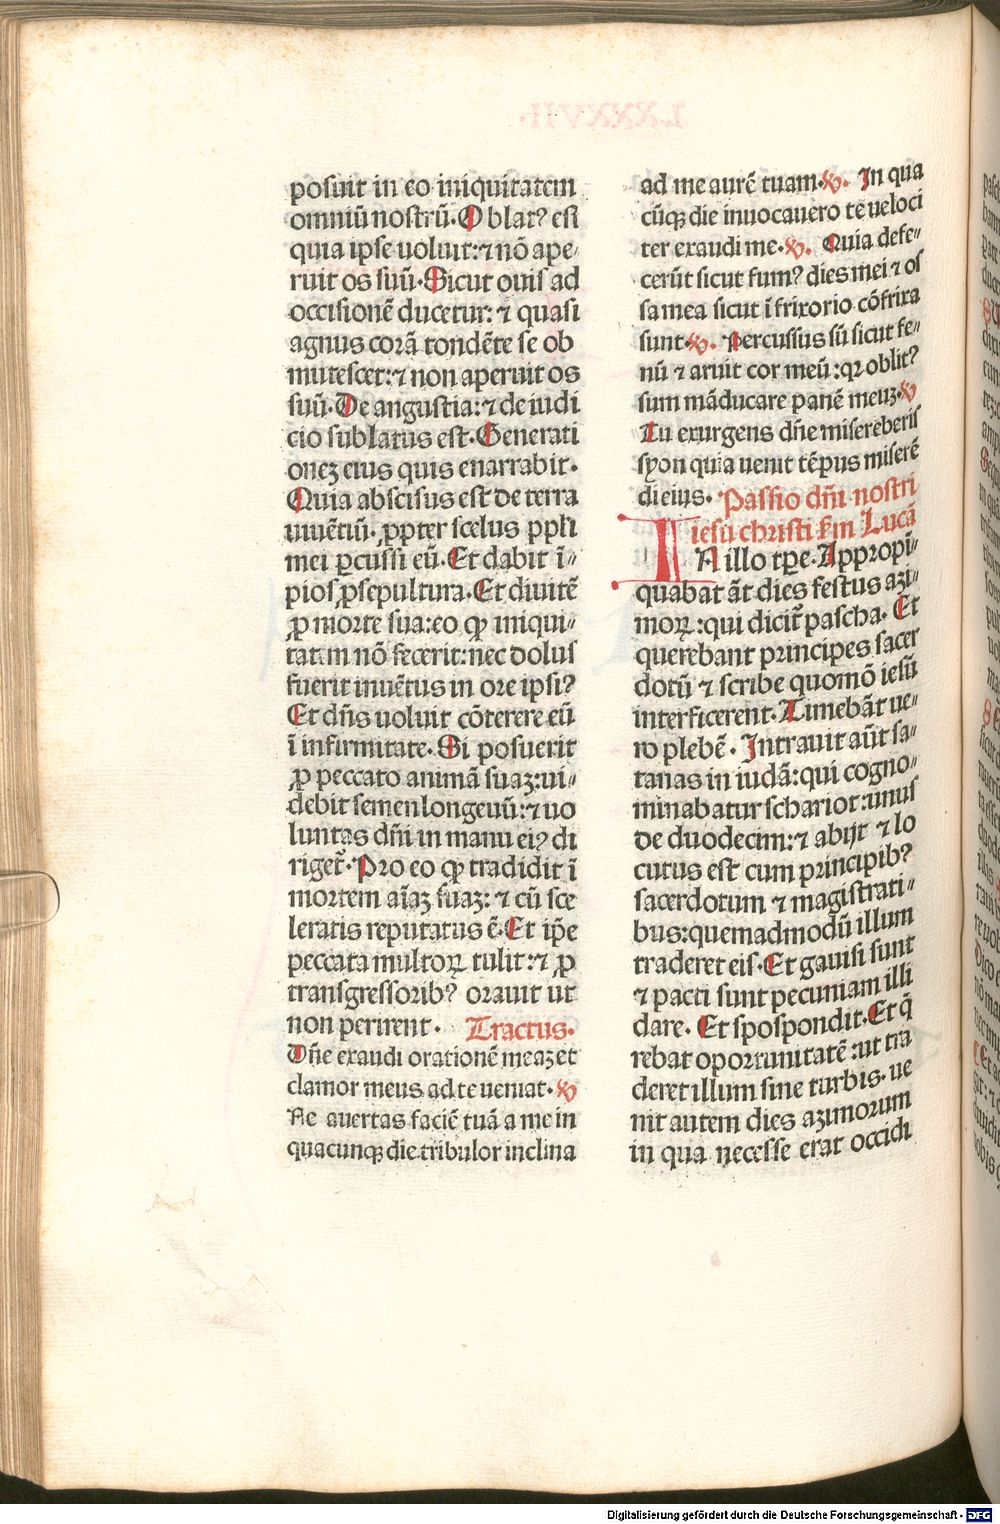 posuit in eo iniquitatem
omniū nostrū. Oblatꝰ est
quia ipse uoluit: ⁊ nō ape-
ruit os suū. Sicut ouis ad
occisionē ducetur: ⁊ quasi
agnus corā tondēte se ob
mutescet: ⁊ non aperuit os
suū. De angustia: ⁊ de iudi
cio sublatus est. Generati
oneꝫ eius quis enarrabit.
Quia abscisus est de terra
uiuētiū. ꝓpter scelus ppłi
mei ꝑcussi eū. Et dabit ī-
pios ꝓ sepultura. Et diuitē
ꝓ morte sua: eo ꝙ iniqui-
tatem nō fecerit: nec dolus
fuerit inuētus in ore ipsiꝰ
Et dn̄s uoluit cōterere eū
ī infirmitate. Si posuerit
ꝓ peccato animā suaꝫ: ui-
debit semen longeuū: ⁊ uo
luntas dn̄i in manu eiꝰ di
riget̄. Pro eo ꝙ tradidit ī
mortem aīaꝫ suaꝫ: ⁊ cū sce
leratis reputatus ē. Et ip̄e
peccata multoꝝ tulit: ⁊ ꝓ
transgressoribꝰ orauit ut
non perirent. Tractus.
Dn̄e exaudi orationē meaꝫ et
clamor meus ad te ueniat. ℣
Ne auertas faciē tuā a me in
quacunqꝫ die tribulor inclina
ad me aurē tuam. ℣. In qua
cūqꝫ die inuocauero te ueloci
ter exaudi me. ℣. Quia defe-
cerūt sicut fumꝰ dies mei ⁊ os
sa mea sicut ī frixorio cōfrixa
sunt. ℣. Percussus sū sicut fe-
nū ⁊ aruit cor meū: qꝛ oblitꝰ
sum māducare panē meuꝫ. ℣
Tu exurgens dn̄e misereberis
syon quia uenit tēpus miserē
di eius. Passio dn̄i nostri
iesu christi ẜm Lucā
IN illo tꝑe. Appropī-
quabat āt dies festus azi-
moꝝ: qui dicit̄ pascha. Et
querebant principes sacer
dotū ⁊ scribe quomō iesū
interficerent. Timebāt ue-
ro plebē. Intrauit aūt sa-
tanas in iudā: qui cogno-
minabatur schariot: unus
de duodecim: ⁊ abijt ⁊ lo
cutus est cum principibꝰ
sacerdotum ⁊ magistrati-
bus: quemadmodū illum
traderet eis. Et gauisi sunt
⁊ pacti sunt pecuniam illi
dare. Et spospondit. Et q̄
rebat oportunitatē: ut tra
deret illum sine turbis. ue
nit autem dies azimorum
in qua necesse erat occidi
Digitalisierung gefördert durch die Deutsche Forschungsgemeinschaft - DFG